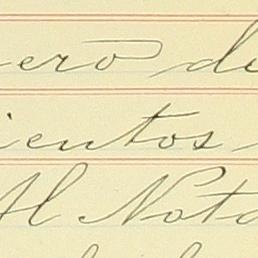 ero de
ientos
Al Nota